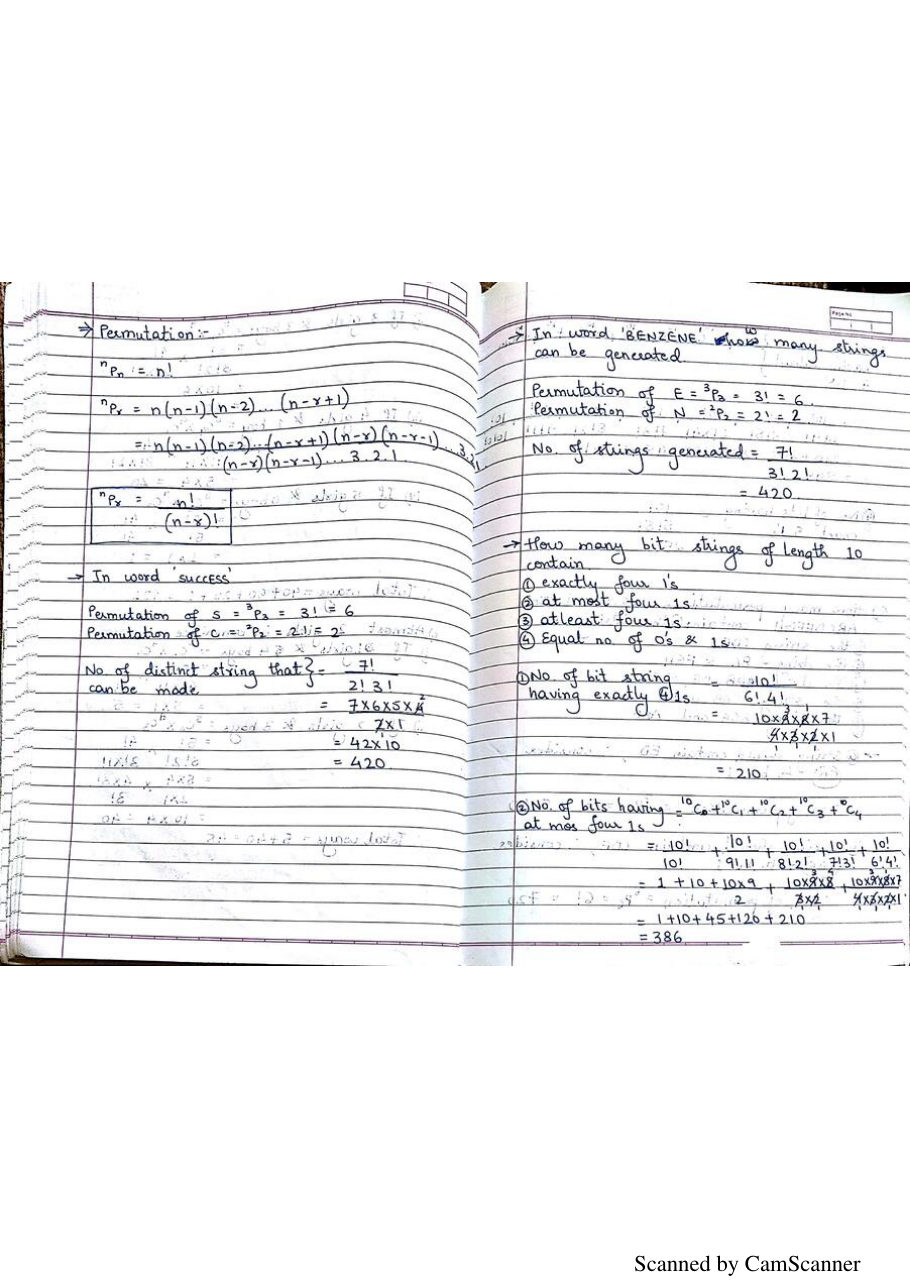 ⇒ Permutation:-
ⁿPₙ = n!
ⁿPᵣ = n(n-1)(n-2)... (n-r+1)
= n(n-1)(n-2)...(n-r+1)(n-r)(n-r-1)...3.2.1
(n-r)(n-r-1)...3.2.1
ⁿPᵣ = n!
(n-r)!
→ In word 'SUCCESS'
Permutation of S = ³P₃ = 3! = 6
Permutation of C = ²P₂ = 2! = 2
No. of distinct string that } = 7!
can be made 2! 3!
= 7x6x5x4 2
2x1
= 42x10
= 420
Page No.
→ In word 'BENZENE' how many strings
can be generated.
Permutation of E = ³P₃ = 3! = 6.
Permutation of N = ²P₂ = 2! = 2
No. of strings generated = 7!
3! 2!
= 420.
→ How many bit strings of length 10
contain
① exactly four 1's
② at most four 1s
③ atleast four 1s.
④ Equal no. of 0's & 1s
① No. of bit string = 10!
having exactly ④ 1s 6! 4!
= 10x9x8x7
4x3x2x1
= 210.
② No. of bits having = ¹⁰C₀ + ¹⁰C₁ + ¹⁰C₂ + ¹⁰C₃ + ¹⁰C₄
at mos four 1s
= 10! + 10! + 10! + 10! + 10!
10! 9!1! 8!2! 7!3! 6!4!
= 1 + 10 + 10x9 + 10x9x8 + 10x9x8x7
2 3x2 4x3x2x1
= 1+10+45+120+210
= 386
Scanned by CamScanner